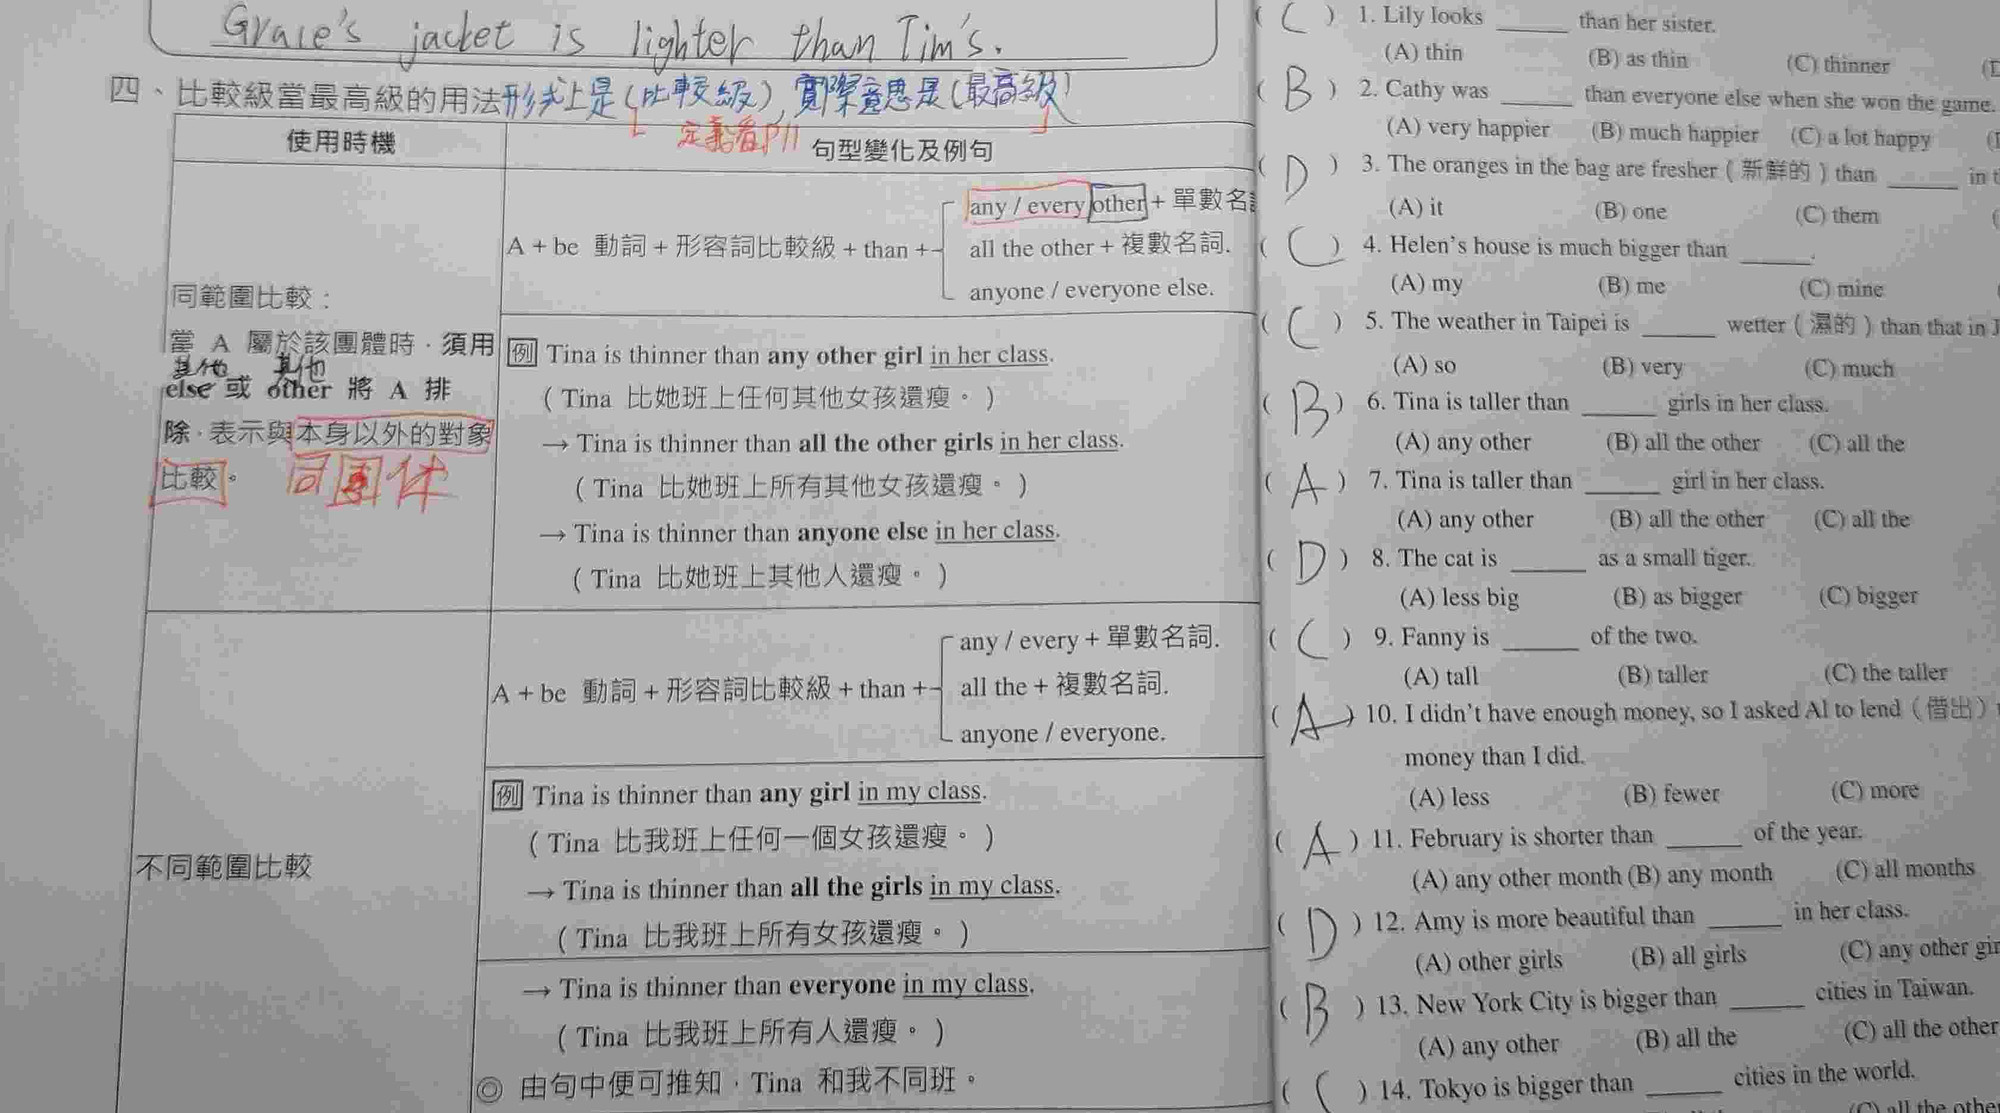 Grace's jacket is lighter than Tim's.
四、比較級當最高級的用法形式上是(比較級),實際意思是(最高級)
定義看P11
使用時機
句型變化及例句
同範圍比較:
當 A 屬於該團體時,須用
其他 其他
else 或 other 將 A 排
除,表示與本身以外的對象
比較。 同團体
any / every other + 單數名
A + be 動詞 + 形容詞比較級 + than +
all the other + 複數名詞.
anyone / everyone else.
例 Tina is thinner than any other girl in her class.
( Tina 比她班上任何其他女孩還瘦。)
→ Tina is thinner than all the other girls in her class.
( Tina 比她班上所有其他女孩還瘦。)
→ Tina is thinner than anyone else in her class.
( Tina 比她班上其他人還瘦。)
不同範圍比較
any / every + 單數名詞.
A + be 動詞 + 形容詞比較級 + than +
all the + 複數名詞.
anyone / everyone.
例 Tina is thinner than any girl in my class.
( Tina 比我班上任何一個女孩還瘦。)
→ Tina is thinner than all the girls in my class.
( Tina 比我班上所有女孩還瘦。)
→ Tina is thinner than everyone in my class.
( Tina 比我班上所有人還瘦。)
◎ 由句中便可推知,Tina 和我不同班。
( C ) 1. Lily looks ______ than her sister.
(A) thin (B) as thin (C) thinner
( B ) 2. Cathy was ______ than everyone else when she won the game.
(A) very happier (B) much happier (C) a lot happy
( D ) 3. The oranges in the bag are fresher ( 新鮮的 ) than ______ in
(A) it (B) one (C) them
( C ) 4. Helen's house is much bigger than ______.
(A) my (B) me (C) mine
( C ) 5. The weather in Taipei is ______ wetter ( 濕的 ) than that in
(A) so (B) very (C) much
( B ) 6. Tina is taller than ______ girls in her class.
(A) any other (B) all the other (C) all the
( A ) 7. Tina is taller than ______ girl in her class.
(A) any other (B) all the other (C) all the
( D ) 8. The cat is ______ as a small tiger.
(A) less big (B) as bigger (C) bigger
( C ) 9. Fanny is ______ of the two.
(A) tall (B) taller (C) the taller
( A ) 10. I didn't have enough money, so I asked Al to lend ( 借出 )
money than I did.
(A) less (B) fewer (C) more
( A ) 11. February is shorter than ______ of the year.
(A) any other month (B) any month (C) all months
( D ) 12. Amy is more beautiful than ______ in her class.
(A) other girls (B) all girls (C) any other
( B ) 13. New York City is bigger than ______ cities in Taiwan.
(A) any other (B) all the (C) all the other
( C ) 14. Tokyo is bigger than ______ cities in the world.
(C) all the other